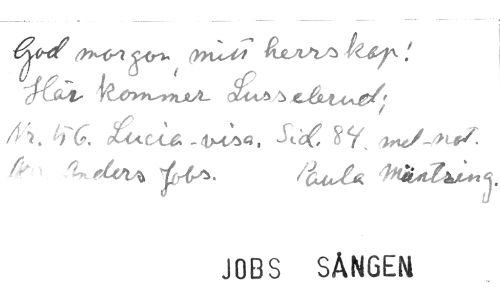 God morgon, mitt herrskap!
Här kommer Lussebrud;
Nr. 56. Lucia-visa. Sid. 84. mel-not.
Anders Jobs. Paula Müntzing.
JOBS SÅNGEN